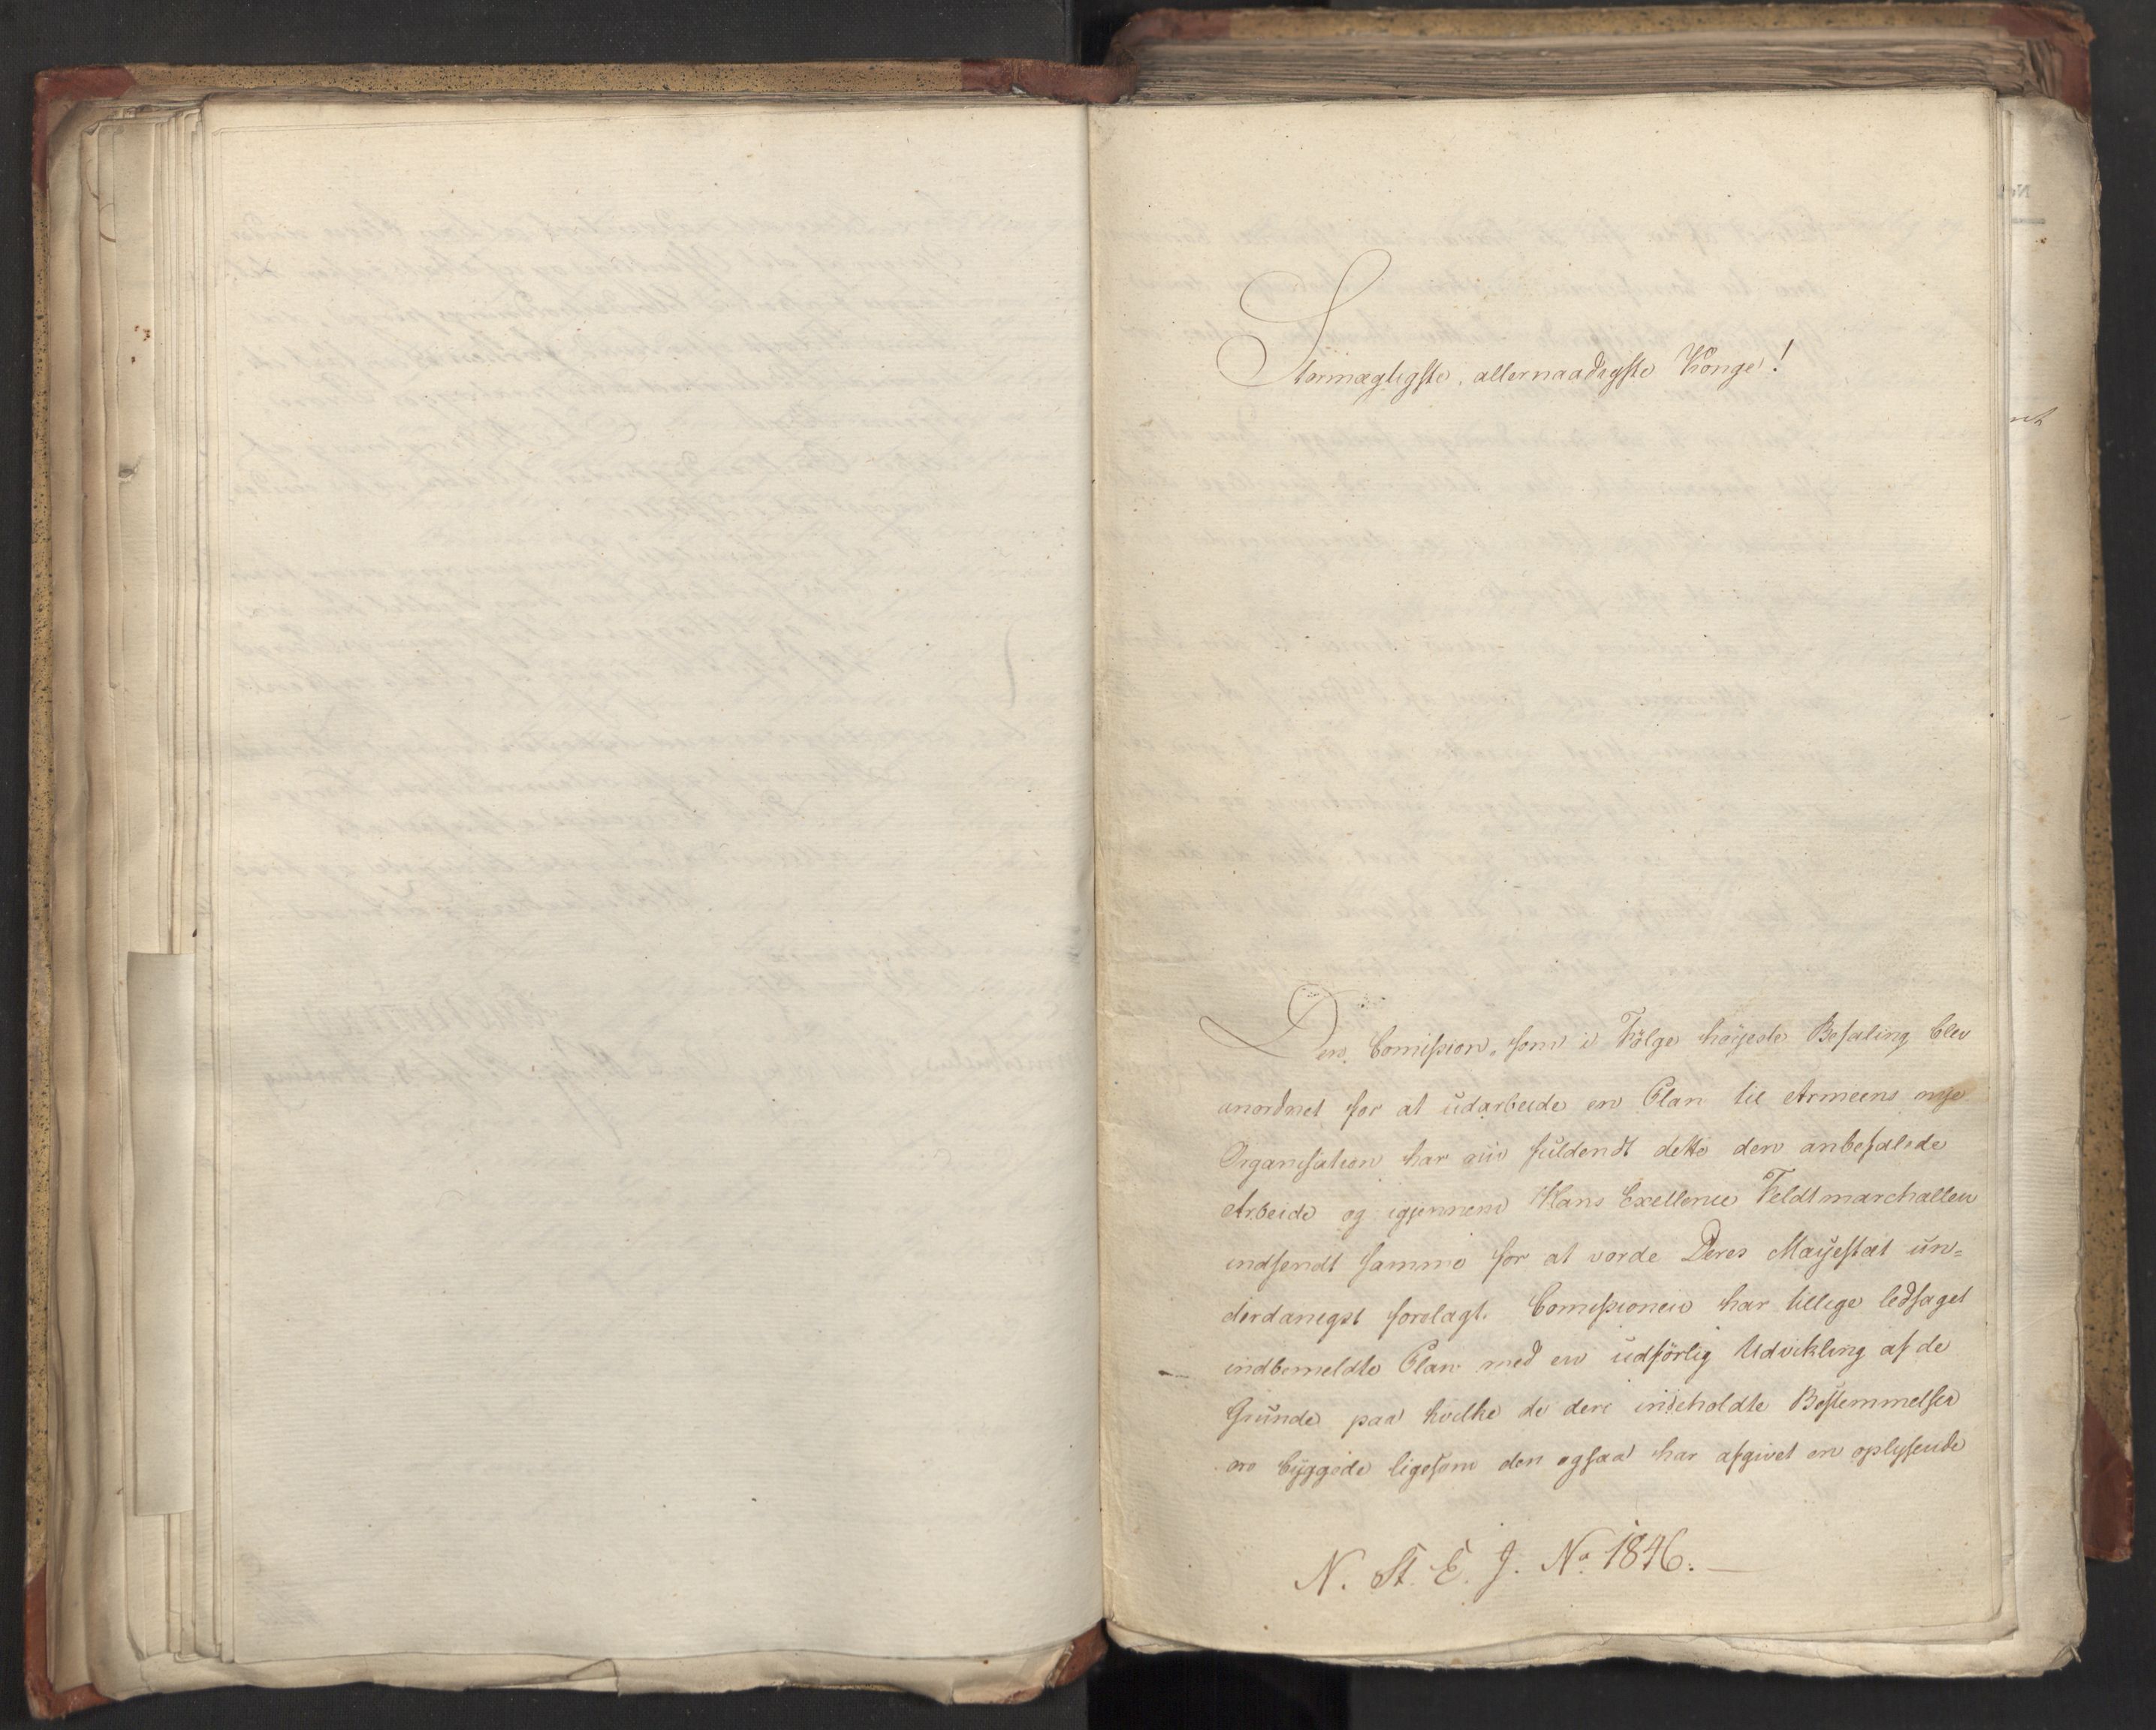 Stormægtigste, allernaadigste Konge!
Den Comission, som i Følge høyeste Befaling blev
anordnet for at udarbeide en Plan til Armeens nye
Organisation har nu fuldendt dette den anbefalede
Arbeide og igjennem Hans Exellence Feldtmarchallen
indsendt samme for at vorde Deres Mayestæt un=
derdanigst forelagt. Comissionen har tillige ledsaget
indbemeldte Plan med en udförlig Udvikling af de
Grunde paa hvilke de deri indeholdte Bestemmelser
ere byggede ligesom den ogsaa har afgivet en oplysende
N. St. E. J. No. 1846.